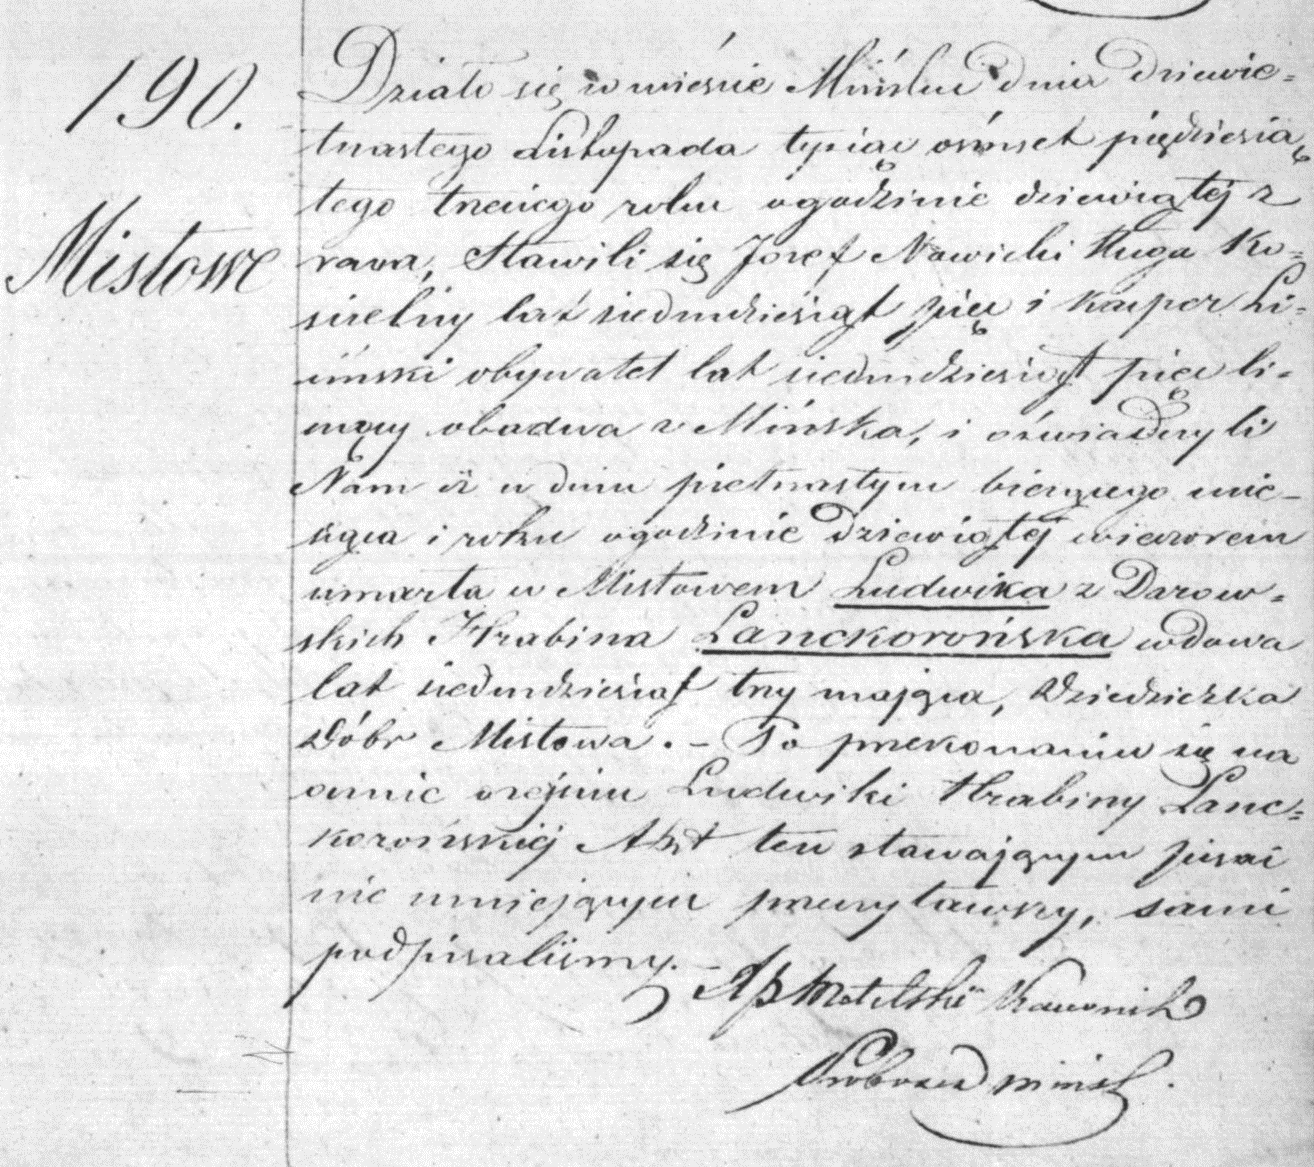 190.
Mistowe
Działo się w mieście Mińsku dnia dziewię=
tnastego Listopada tysiąc ośmset pięździesią
tego trzeciego roku o godzinie dziewiątej z
rana, Stawili się Jozef Nowicki Sługa Ko=
ścielny lat siedmdziesiąt pięć i Kasper Li=
ciński obywatel lat siedmdziesiąt pięć li=
czący obadwa z Mińska, i oświadczyli
Nam iż w dniu piętnastym bieżącego mie=
siąca i roku o godzinie dziewiątej wieczorem
umarła w Mistowem Ludwika z Darow=
skich Hrabina Lanckorońska wdowa
lat siedmdziesiąt trzy mająca, Dziedziczka
Dóbr Mistowa. – Po przekonaniu się na
ocznie o zejściu Ludwiki Hrabiny Lanc=
korońskiej Akt ten stawającym pisać
nie umiejącym przeczytawszy, sami
podpisaliśmy. –
Kanonik
Proboszcz mińsk.